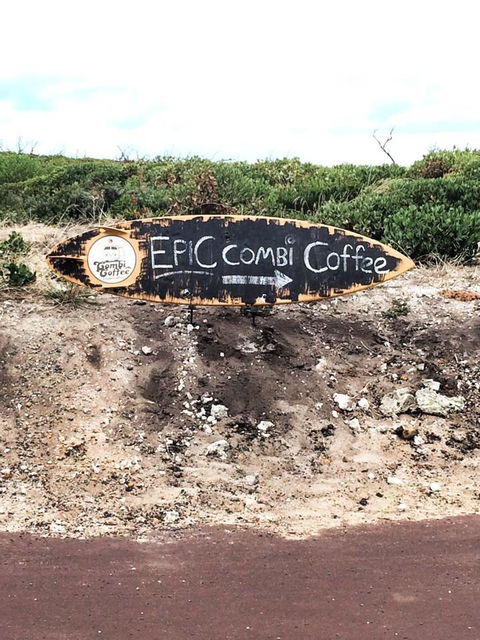 EPIC COMBi Coffee
Combi
Coffee